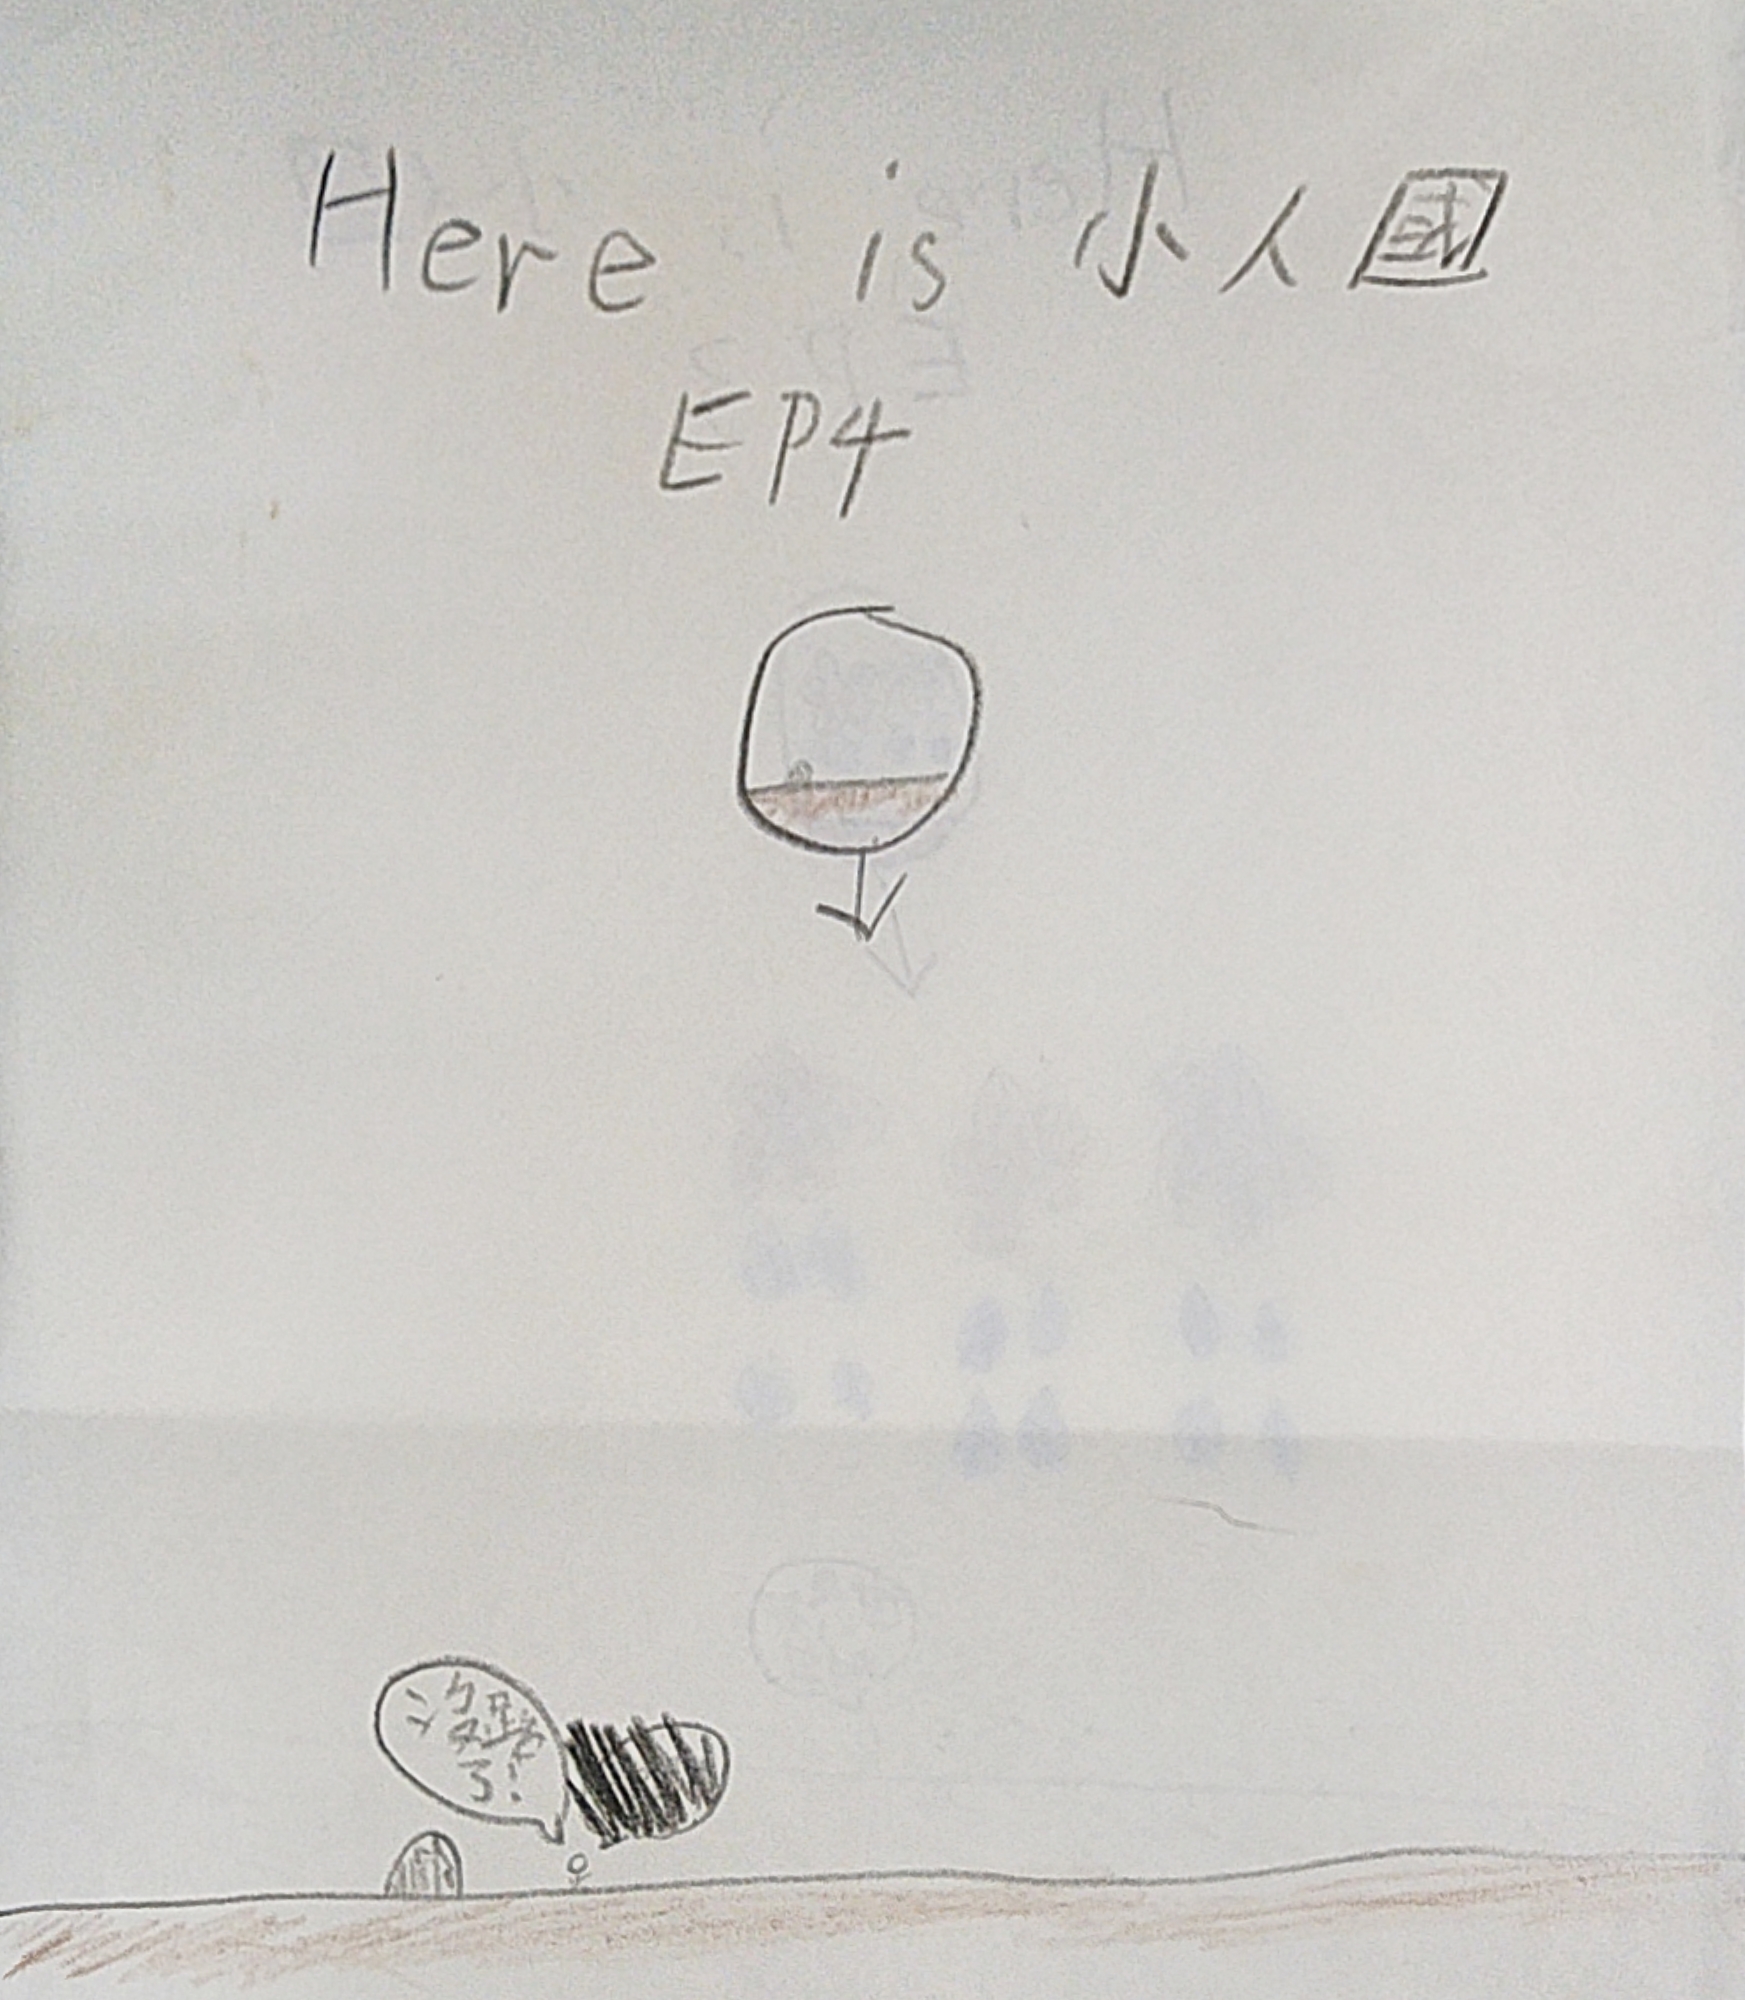 Here is 小人國
EP4
沒路
了!